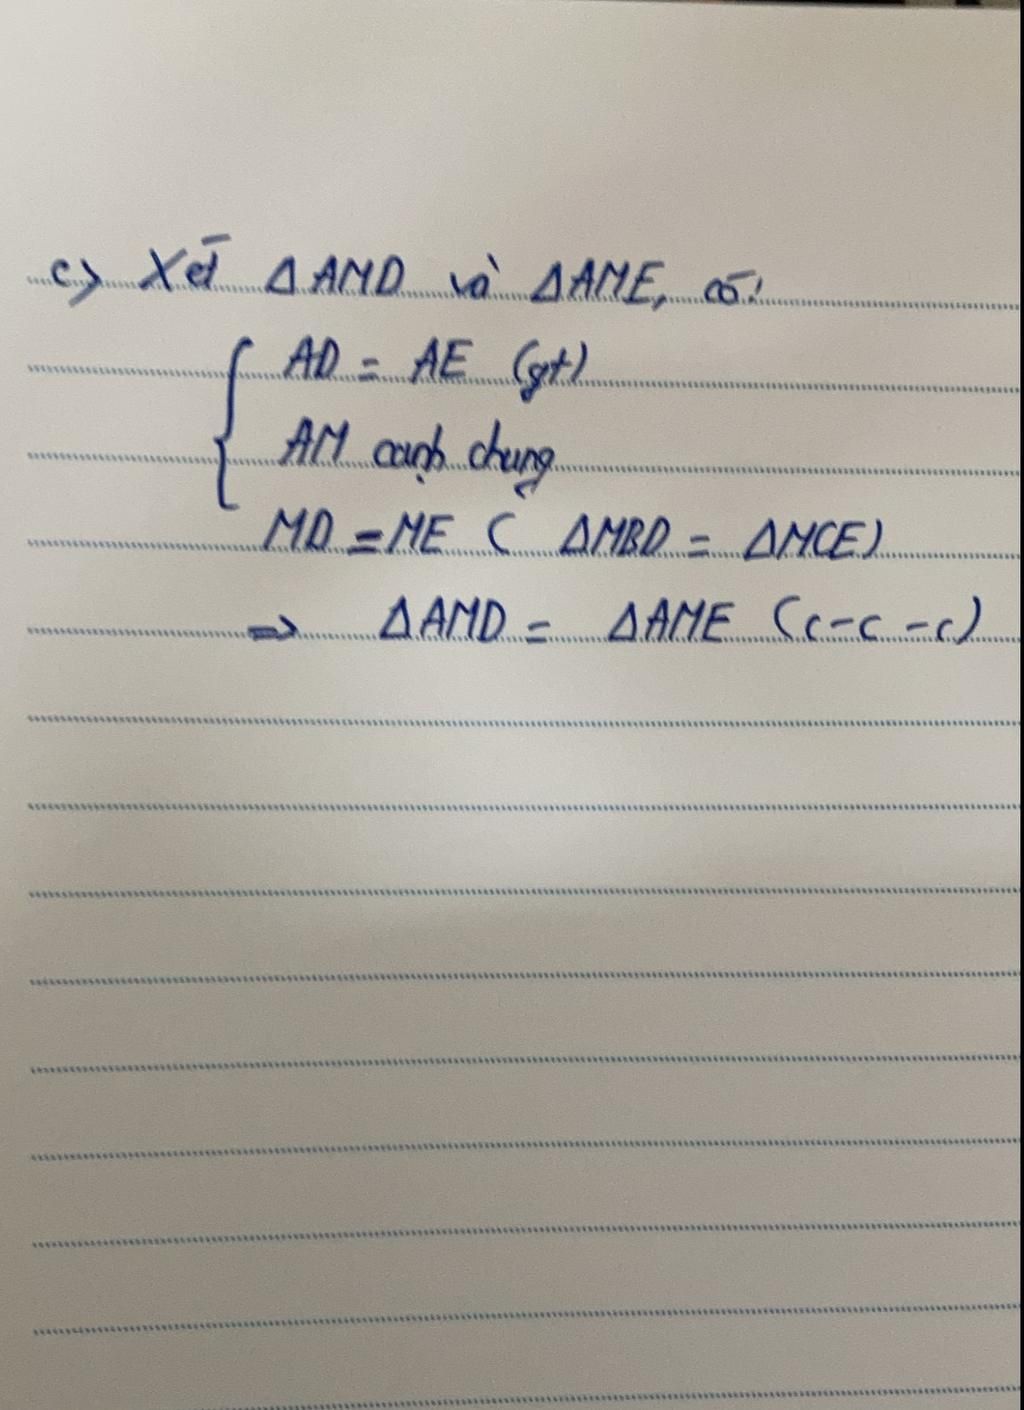 c) Xét ΔAMD và ΔAME, có:
AD = AE (gt)
AM cạnh chung
MD = ME ( ΔMBD = ΔMCE)
=> ΔAMD = ΔAME (c-c-c)